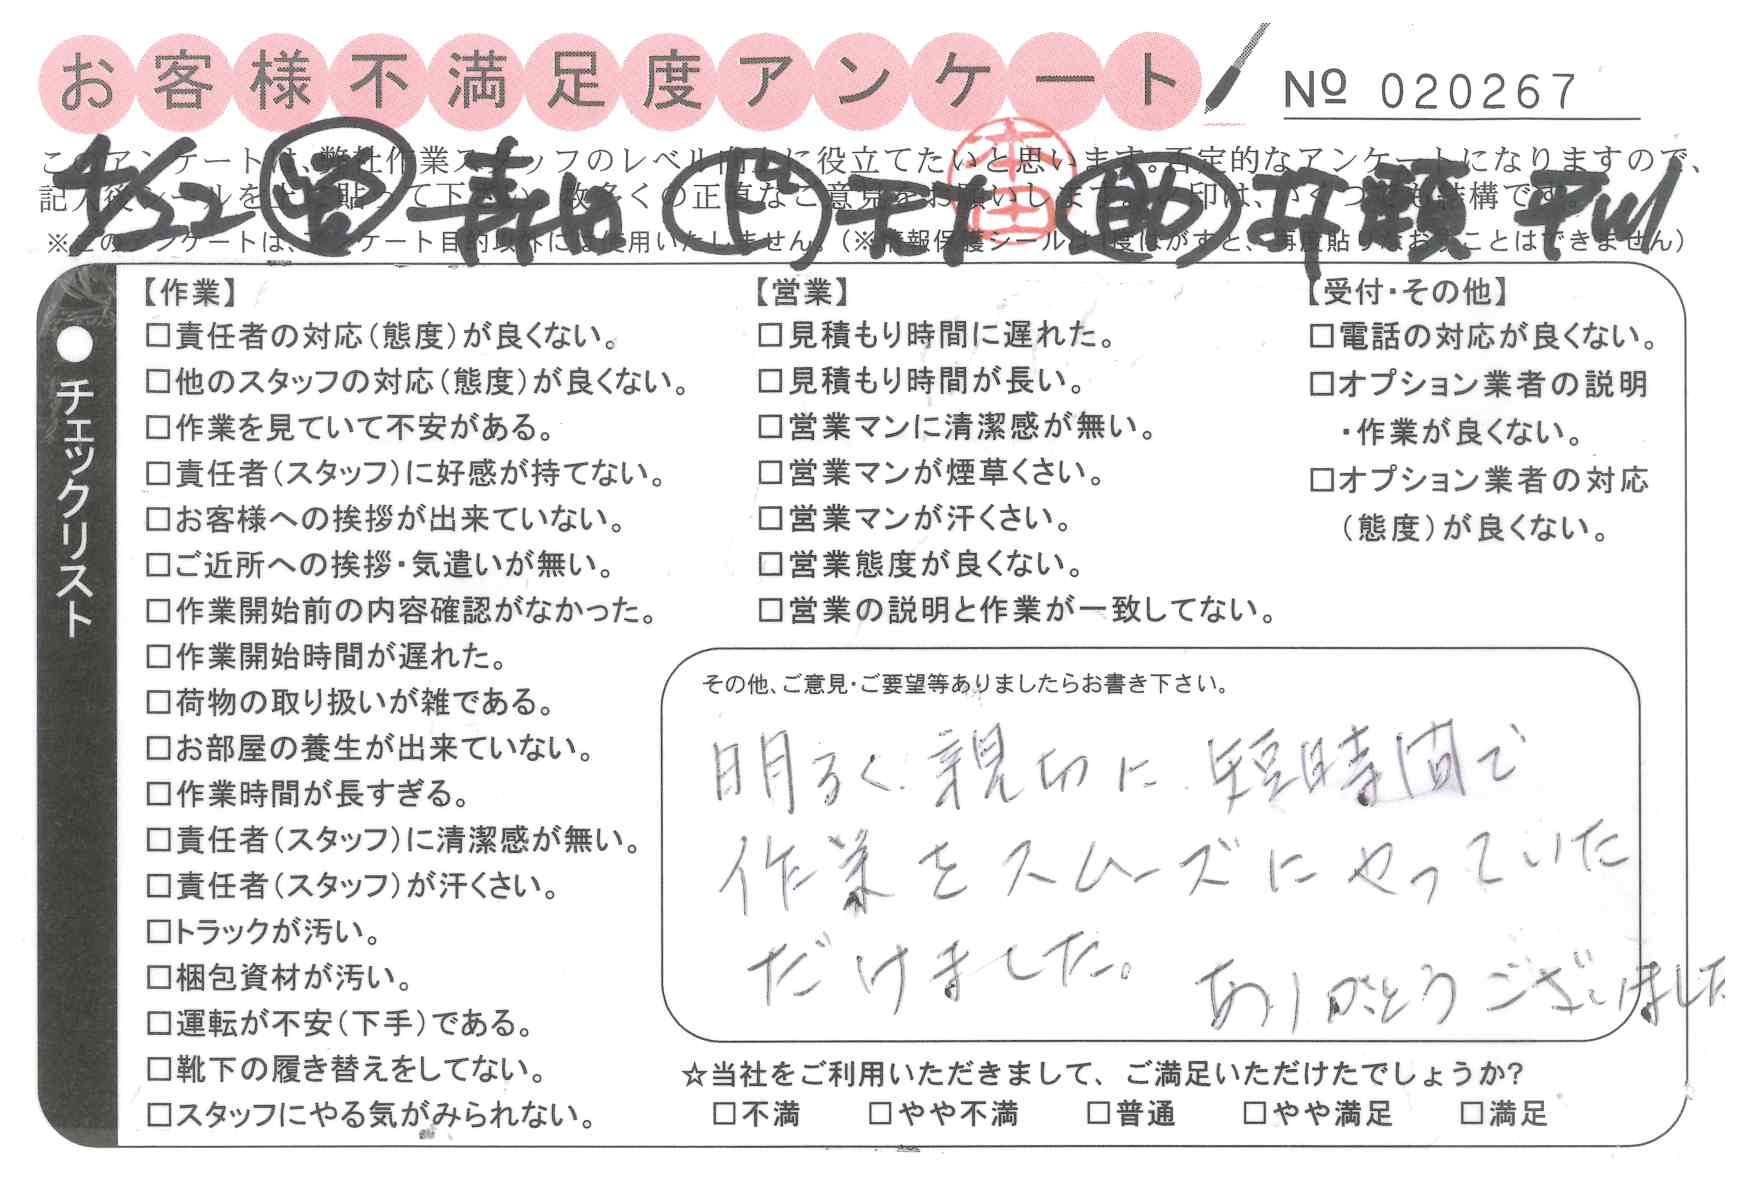 お客様不満足度アンケート
№ 020267
このアンケートは、弊社作業スタッフのレベル向上に役立てたいと思います。否定的なアンケートになりますので、
記入後シールを上に貼って下さい。数多くの正直なご意見をお願いします。印は、いくつでも結構です。
※このアンケートは、アンケート目的以外には使用いたしません。（※情報保護シールは1度はがすと、再度貼りなおすことはできません）
4/22 営 下 助 平山
本田
●チェックリスト
【作業】
□責任者の対応（態度）が良くない。
□他のスタッフの対応（態度）が良くない。
□作業を見ていて不安がある。
□責任者（スタッフ）に好感が持てない。
□お客様への挨拶が出来ていない。
□ご近所への挨拶・気遣いが無い。
□作業開始前の内容確認がなかった。
□作業開始時間が遅れた。
□荷物の取り扱いが雑である。
□お部屋の養生が出来ていない。
□作業時間が長すぎる。
□責任者（スタッフ）に清潔感が無い。
□責任者（スタッフ）が汗くさい。
□トラックが汚い。
□梱包資材が汚い。
□運転が不安（下手）である。
□靴下の履き替えをしてない。
□スタッフにやる気がみられない。
【営業】
□見積もり時間に遅れた。
□見積もり時間が長い。
□営業マンに清潔感が無い。
□営業マンが煙草くさい。
□営業マンが汗くさい。
□営業態度が良くない。
□営業の説明と作業が一致してない。
【受付・その他】
□電話の対応が良くない。
□オプション業者の説明
・作業が良くない。
□オプション業者の対応
（態度）が良くない。
その他、ご意見・ご要望等ありましたらお書き下さい。
明るく親切に短時間で
作業をスムーズにやっていた
だけました。ありがとうございました
☆当社をご利用いただきまして、ご満足いただけたでしょうか?
□不満 □やや不満 □普通 □やや満足 □満足